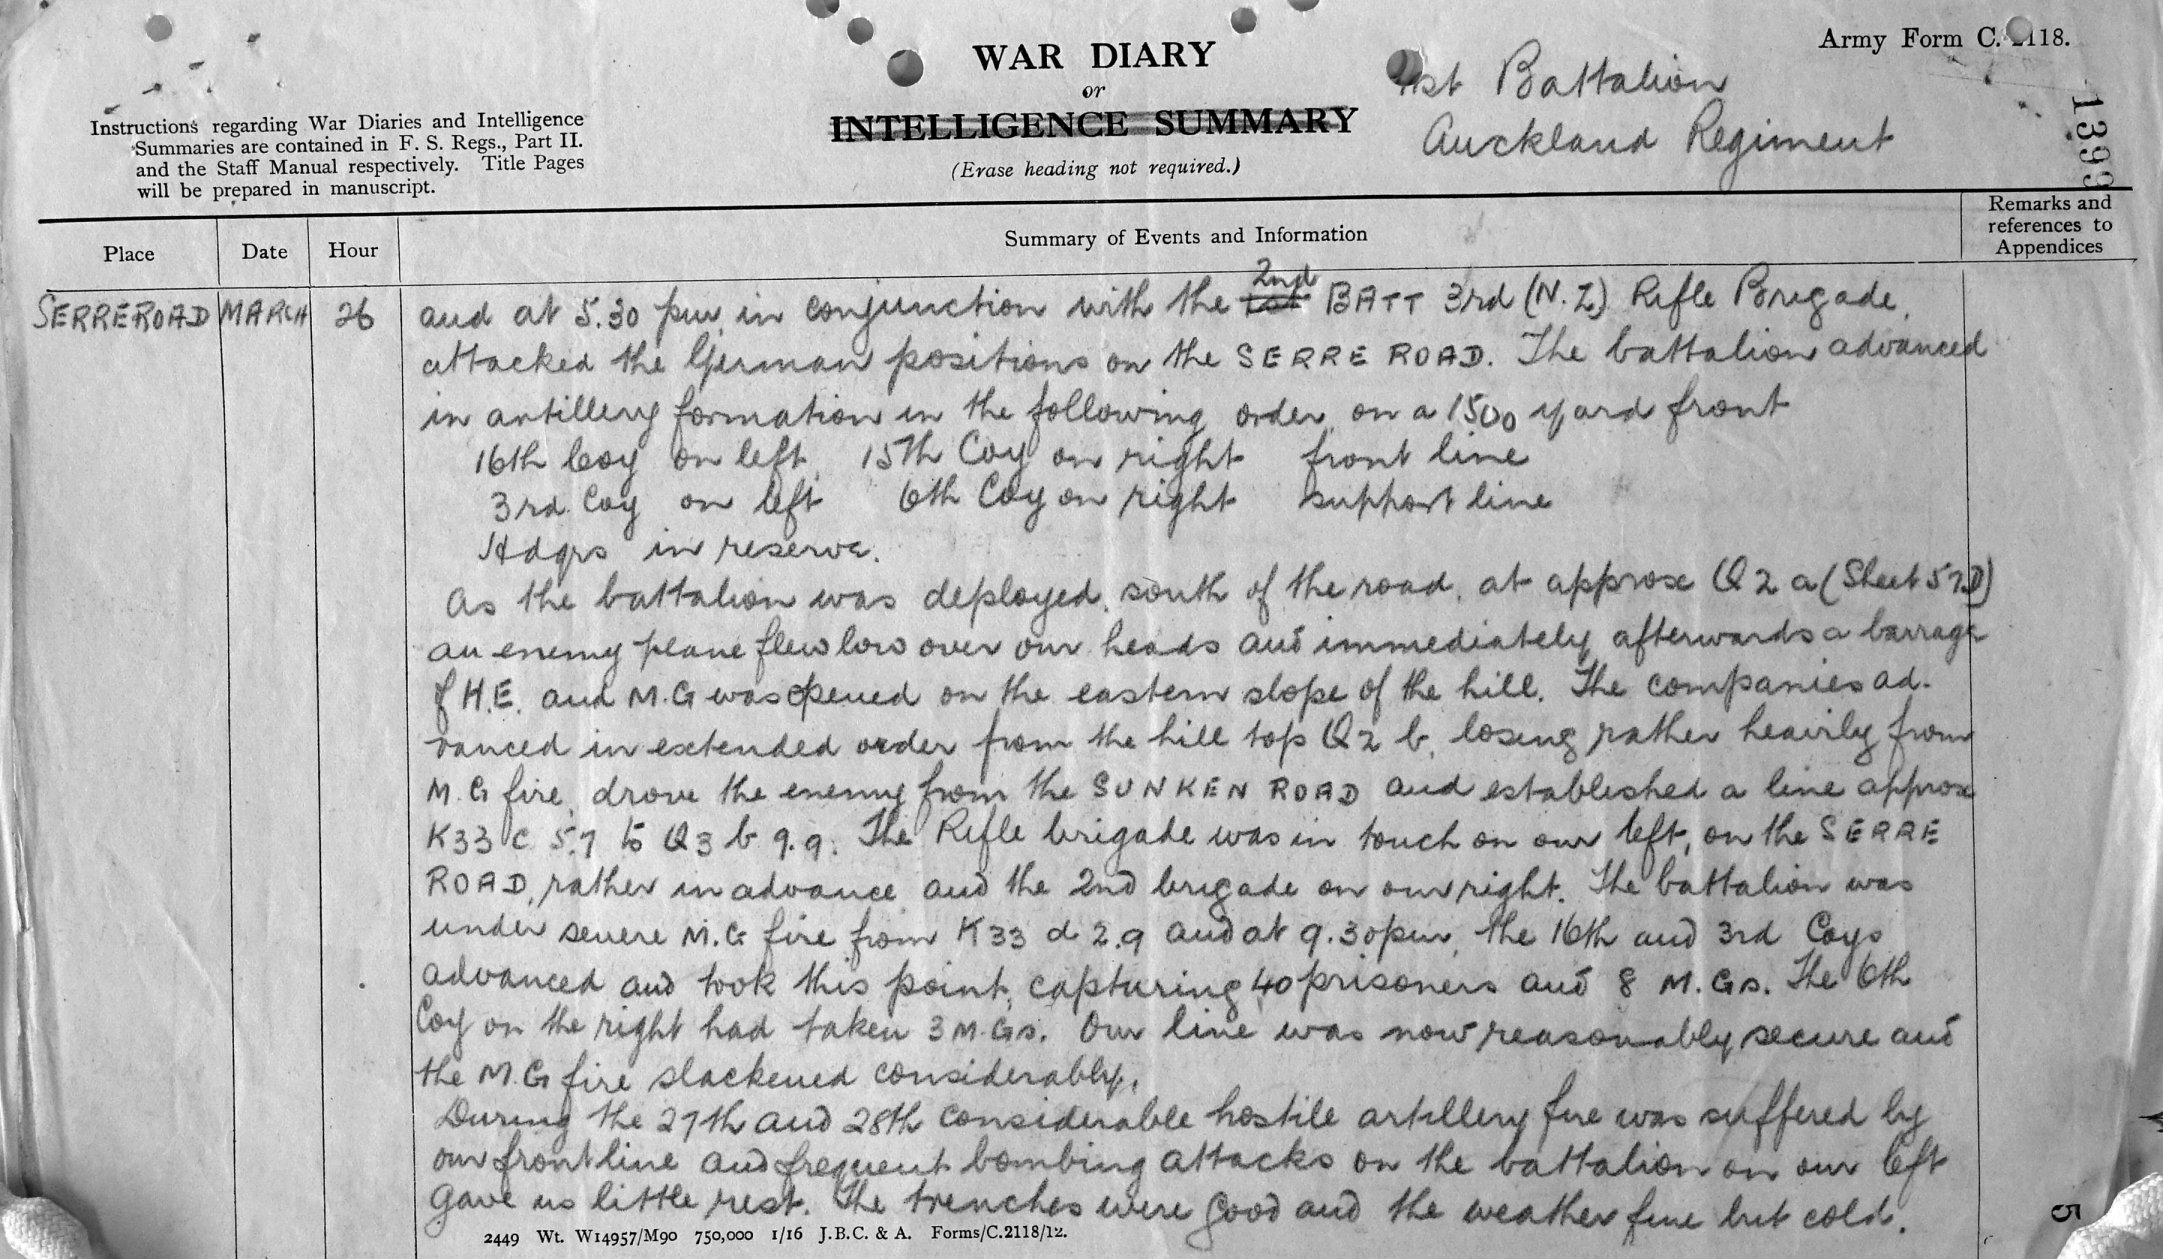 Army Form C. 2118.
WAR DIARY
or
INTELLIGENCE SUMMARY
(Erase heading not required.)
1st Battalion
Auckland Regiment
1399
Instructions regarding War Diaries and Intelligence
Summaries are contained in F. S. Regs., Part II.
and the Staff Manual respectively. Title Pages
will be prepared in manuscript.
Place
Date
Hour
Summary of Events and Information
Remarks and
references to
Appendices
SERRE ROAD MARCH 26
2nd
and at 5.30 pm, in conjunction with the 1st BATT 3rd (N.Z) Rifle Brigade,
attacked the German positions on the SERRE ROAD. The battalion advanced
in artillery formation in the following order, on a 1500 yard front
16th Coy on left, 15th Coy on right front line
3rd Coy on left 6th Coy on right support line
Hdqrs in reserve.
As the battalion was deployed, south of the road, at approx Q 2 a (Sheet 57D)
an enemy plane flew low over our heads and immediately afterwards a barrage
of H.E. and M.G was opened on the eastern slope of the hill. The companies ad-
vanced in extended order from the hill top Q2 b, losing rather heavily from
M.G fire, drove the enemy from the SUNKEN ROAD and established a line approx
K33 c 5.7 to Q3 b 9.9. The Rifle brigade was in touch on our left, on the SERRE
ROAD, rather in advance and the 2nd brigade on our right. The battalion was
under severe M.G fire from K33 d 2.9 and at 9.30pm, the 16th and 3rd Coys
advanced and took this point, capturing 40 prisoners and 8 M.Gs. The 6th
Coy on the right had taken 3 M.Gs. Our line was now reasonably secure and
the M.G fire slackened considerably.
During the 27th and 28th considerable hostile artillery fire was suffered by
our front line and frequent bombing attacks on the battalion on our left
gave us little rest. The trenches were good and the weather fine but cold.
2449 Wt. W14957/M90 750,000 1/16 J.B.C. & A. Forms/C.2118/12.
5